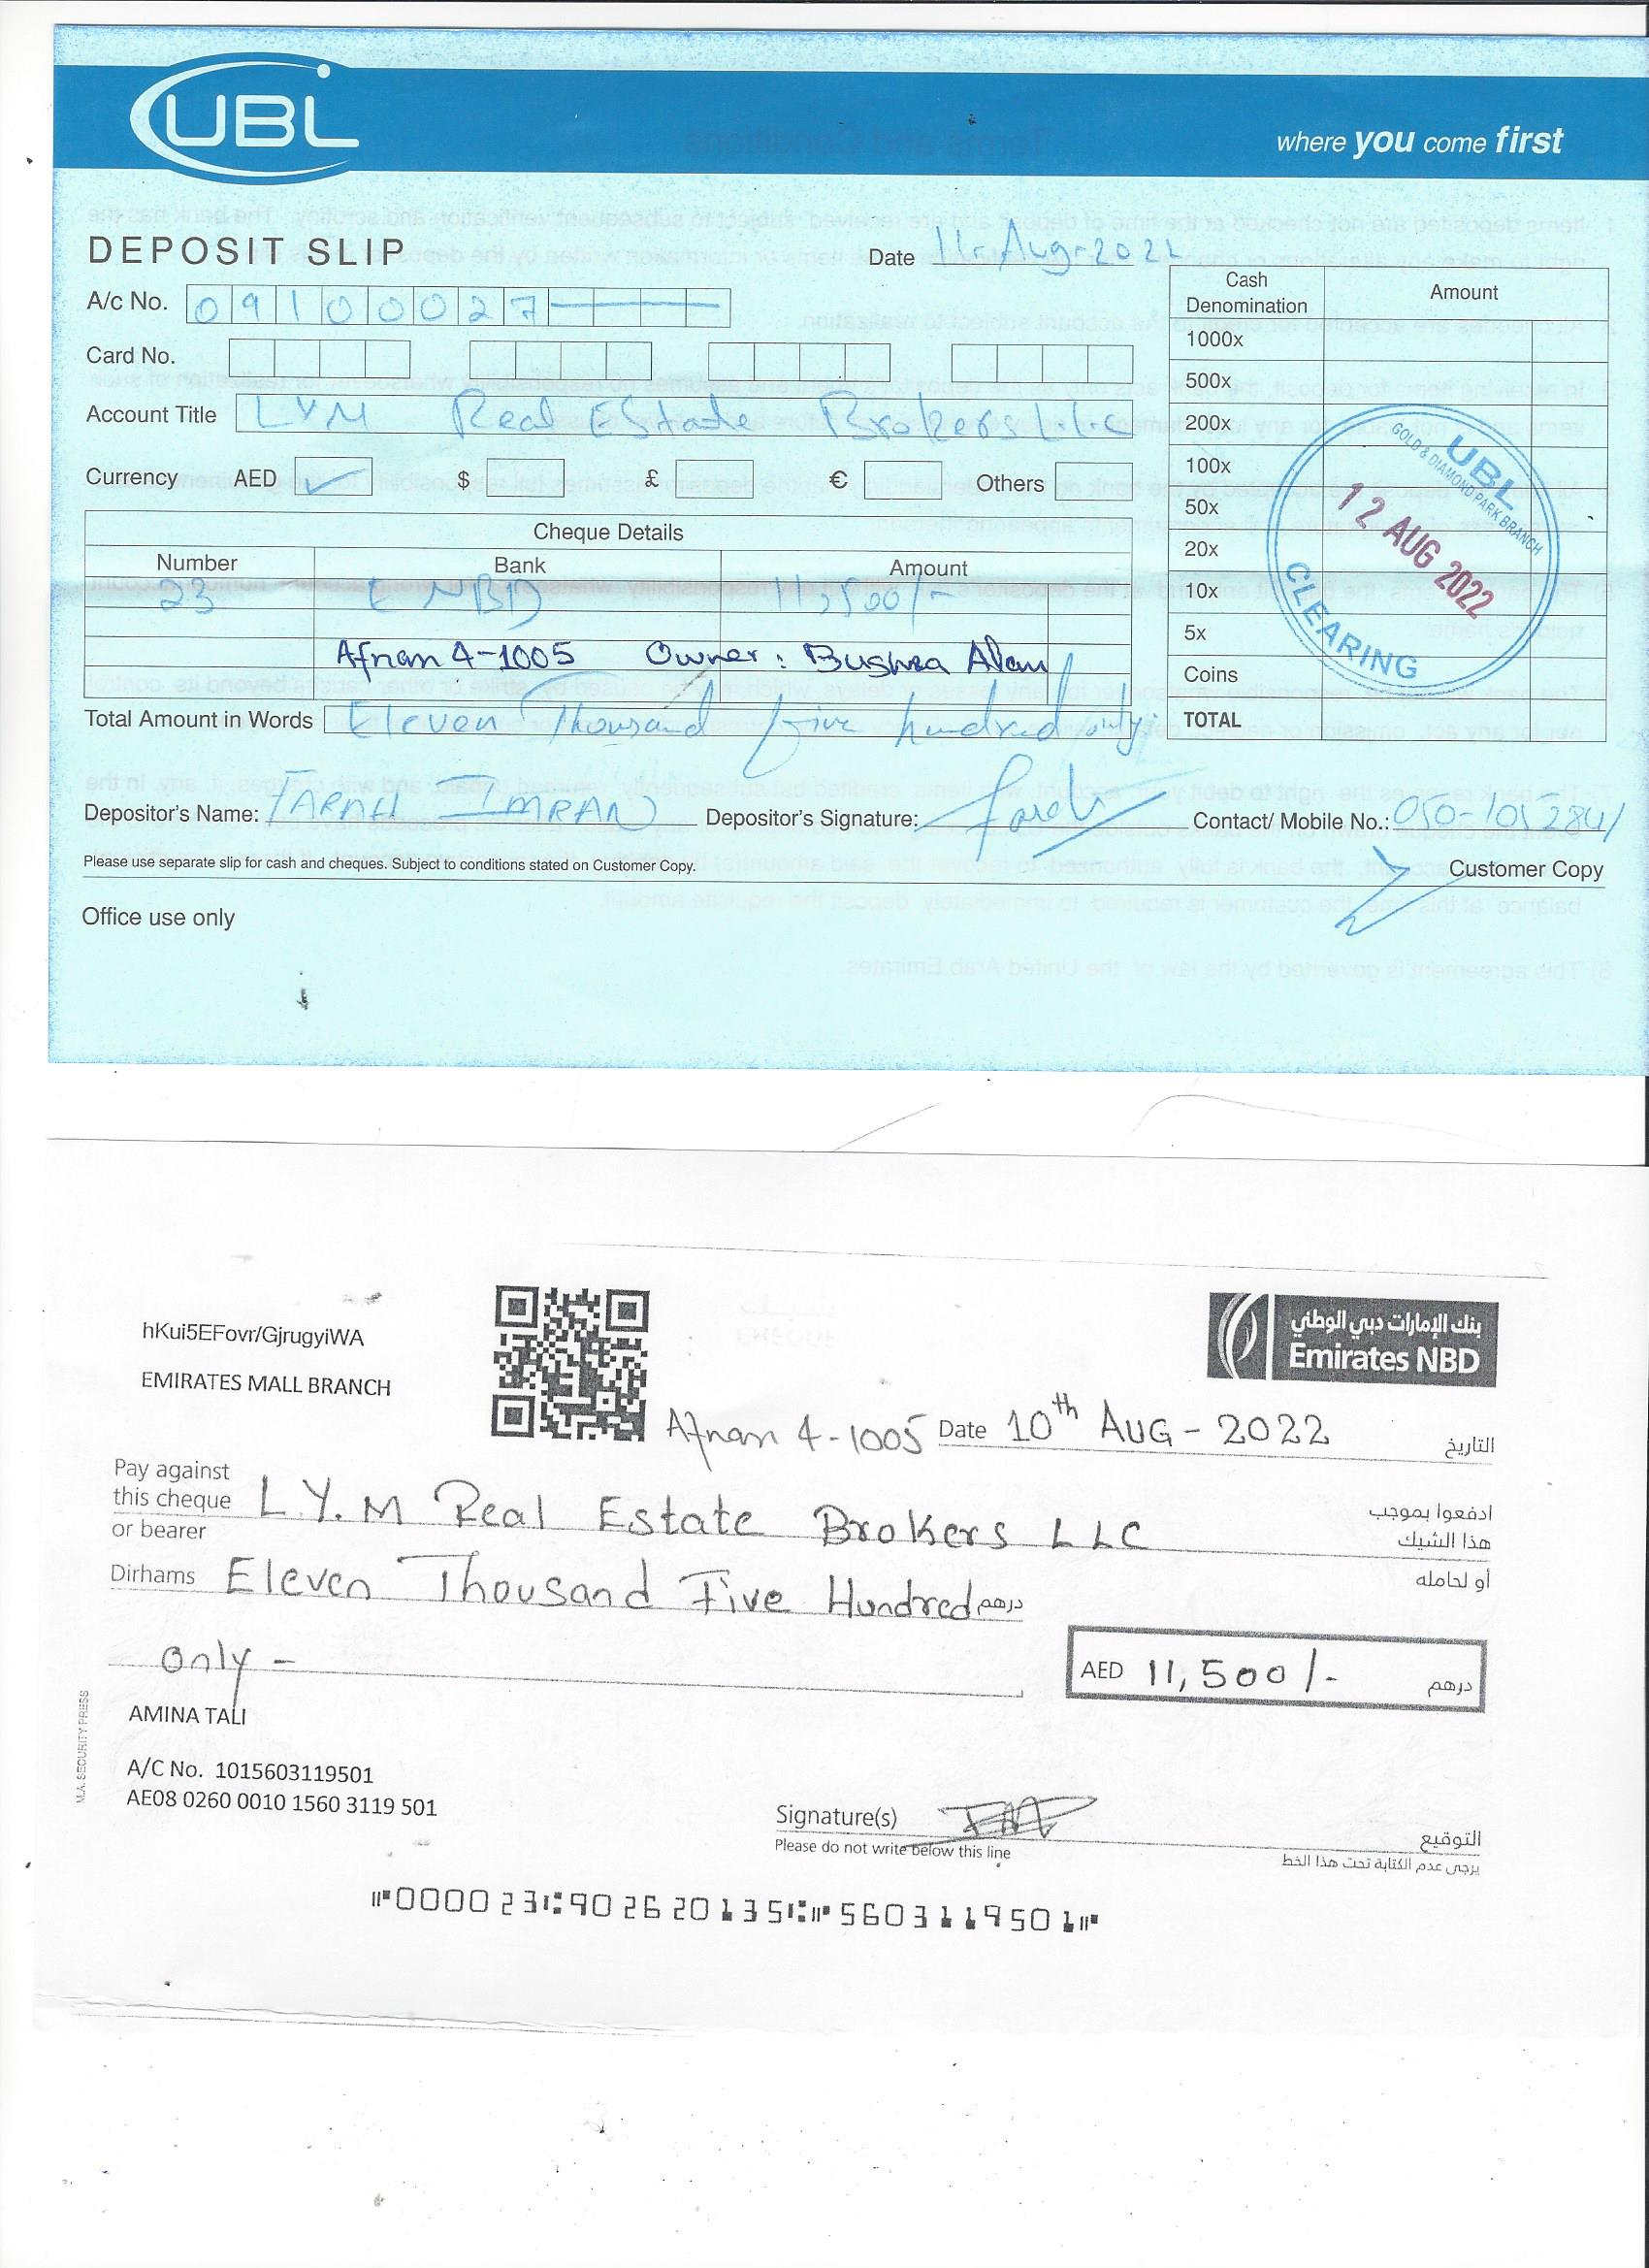 UBL
where you come first
DEPOSIT SLIP
Date 11-Aug-2022
A/c No. 09100027
Card No.
Account Title LYM Real Estate Brokers LLC
Currency AED $ £ € Others
Cheque Details
Number Bank Amount
23 ENBD 11,500/-
Afnan 4-1005 Owner: Bushra Alam
Total Amount in Words Eleven Thousand five hundred only
Cash Denomination Amount
1000x
500x
200x
100x
50x
20x
10x
5x
Coins
TOTAL
UBL
GOLD & DIAMOND PARK BRANCH
12 AUG 2022
CLEARING
Depositor's Name: IMRAN Depositor's Signature: Contact/ Mobile No.: 050-1052841
Please use separate slip for cash and cheques. Subject to conditions stated on Customer Copy.
Customer Copy
Office use only
hKui5EFovr/GjrugyiWA
EMIRATES MALL BRANCH
بنك الإمارات دبي الوطني
Emirates NBD
Afnan 4-1005 Date 10th AUG - 2022 التاريخ
Pay against this cheque or bearer L.Y.M Real Estate Brokers LLC ادفعوا بموجب هذا الشيك أو لحامله
Dirhams Eleven Thousand Five Hundred درهم
only -
AED 11,500/- درهم
M.A. SECURITY PRESS
AMINA TALI
A/C No. 1015603119501
AE08 0260 0010 1560 3119 501
Signature(s) التوقيع
Please do not write below this line يرجى عدم الكتابة تحت هذا الخط
⑈000023⑆902620135⑆⑈5603119501⑈